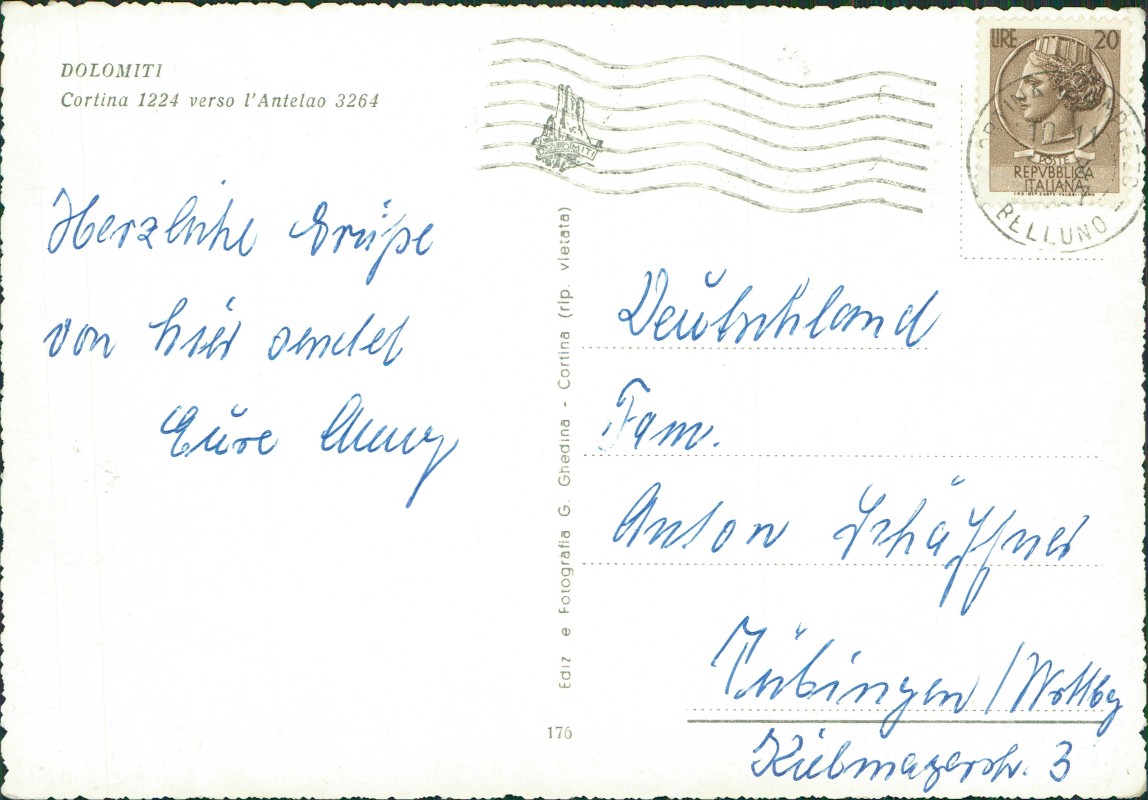 DOLOMITI
Cortina 1224 verso l'Antelao 3264
Herzliche Grüße
von hier sendet
Eure Anny
Ediz e Fotografia G. Ghedina - Cortina (rip. vietata)
176
DOLOMITI
LIRE 20
POSTE
REPVBBLICA
ITALIANA
BELLUNO
Deutschland
Fam.
Anton Schäffner
Tübingen / Wttbg
Kielmayerstr. 3